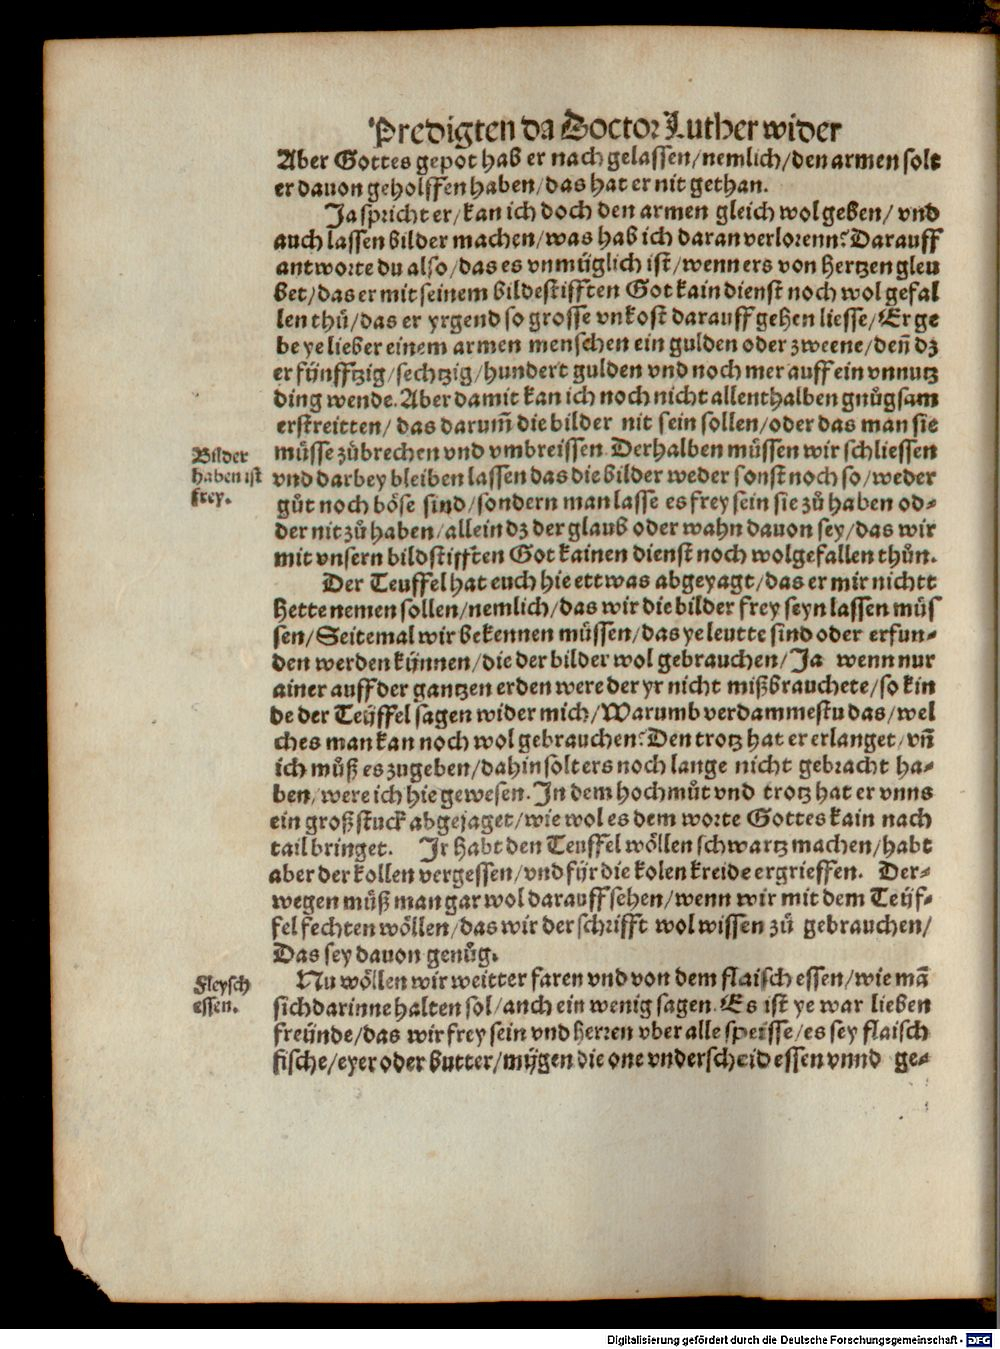 Predigten da Doctor Luther wider
Aber Gottes gepot hab er nach gelassen/nemlich/den armen solt
er dauon geholffen haben/das hat er nit gethan.
Ja spricht er/kan ich doch den armen gleich wol geben/ vnd
auch lassen bilder machen/was hab ich daran verlorenn? Darauff
antworte du also/das es vnmüglich ist/wenn ers von hertzen gleu
bet/das er mit seinem bildestifften Got kain dienst noch wol gefal
len thů/das er yrgend so grosse vnkost darauff gehen liesse/Er ge
be ye lieber einem armen menschen ein gulden oder zweene/deñ dz
er fünfftzig/sechtzig/hundert gulden vnd noch mer auff ein vnnutz
ding wende. Aber damit kan ich noch nicht allenthalben gnůgsam
erstreitten/ das darum̃ die bilder nit sein sollen/oder das man sie
müsse zůbrechen vnd vmbreissen. Derhalben müssen wir schliessen
Bilder
haben ist
frey.
vnd darbey bleiben lassen das die bilder weder sonst noch so/weder
gůt noch böse sind/sondern man lasse es frey sein sie zů haben od-
der nit zů haben/allein dz der glaub oder wahn dauon sey/das wir
mit vnsern bildstifften Got kainen dienst noch wolgefallen thůn.
Der Teuffel hat euch hie ettwas abgeyagt/das er mir nichtt
hette nemen sollen/nemlich/das wir die bilder frey seyn lassen müs
sen/Seitemal wir bekennen müssen/das ye leutte sind oder erfun-
den werden kÿnnen/die der bilder wol gebrauchen/Ja wenn nur
ainer auff der gantzen erden were der yr nicht mißbrauchete/so kin
de der Teÿffel sagen wider mich/Warumb verdammestu das/wel
ches man kan noch wol gebrauchen? Den trotz hat er erlanget/vñ
ich můß es zugeben/dahin solt ers noch lange nicht gebracht ha-
ben/were ich hie gewesen. In dem hochmůt vnd trotz hat er vnns
ein groß stuck abgejaget/wie wol es dem worte Gottes kain nach
tail bringet. Ir habt den Teuffel wöllen schwartz machen/habt
aber der kollen vergessen/vnd fÿr die kolen kreide ergrieffen. Der-
wegen můß man gar wol darauff sehen/wenn wir mit dem Teÿf-
fel fechten wöllen/das wir der schrifft wol wissen zů gebrauchen/
Das sey dauon genůg.
Fleysch
essen.
Nu wöllen wir weitter faren vnd von dem flaisch essen/wie mā
sich darinne halten sol/auch ein wenig sagen. Es ist ye war lieben
freünde/das wir frey sein vnd herren vber alle speisse/es sey flaisch
fische/eyer oder butter/mÿgen die one vnderscheid essen vnnd ge-
Digitalisierung gefördert durch die Deutsche Forschungsgemeinschaft - DFG